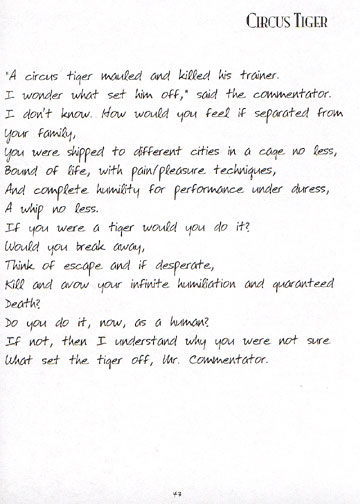 CIRCUS TIGER
"A circus tiger mauled and killed his trainer.
I wonder what set him off," said the commentator.
I don't know. How would you feel if separated from
Your family,
You were shipped to different cities in a cage no less,
Bound of life, with pain/pleasure techniques,
And complete humility for performance under duress,
A whip no less.
If you were a tiger would you do it?
Would you break away,
Think of escape and if desperate,
Kill and avow your infinite humiliation and guaranteed
Death?
Do you do it, now, as a human?
If not, then I understand why you were not sure
What set the tiger off, Mr. Commentator.
47